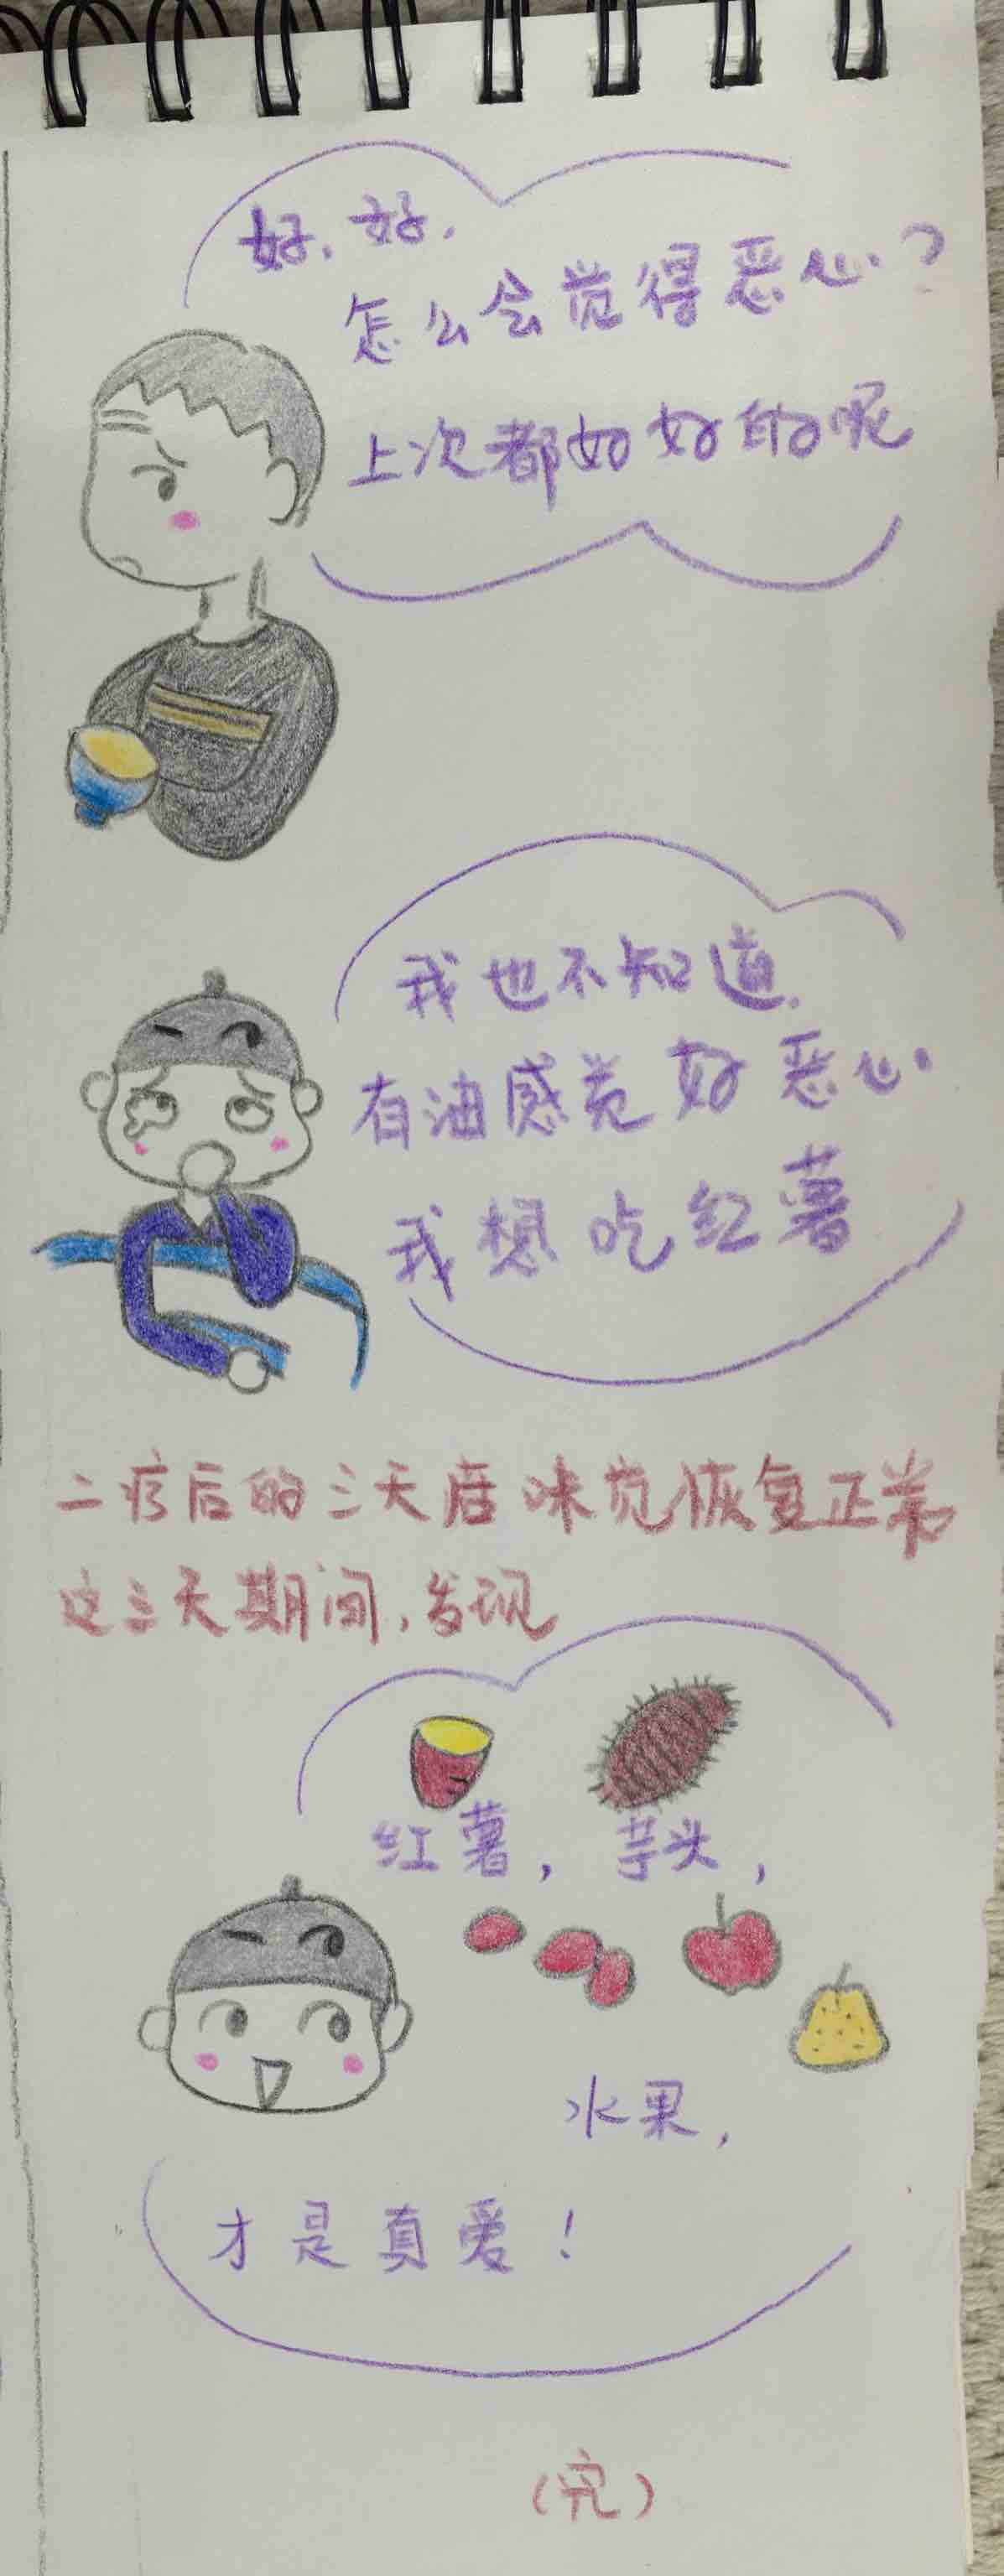 好，好，
怎么会觉得恶心？
上次都好好的呢
我也不知道，
有油感觉好恶心
我想吃红薯
二疗后的三天后味觉恢复正常
这三天期间，发现
红薯，芋头，
水果，
才是真爱！
（完）